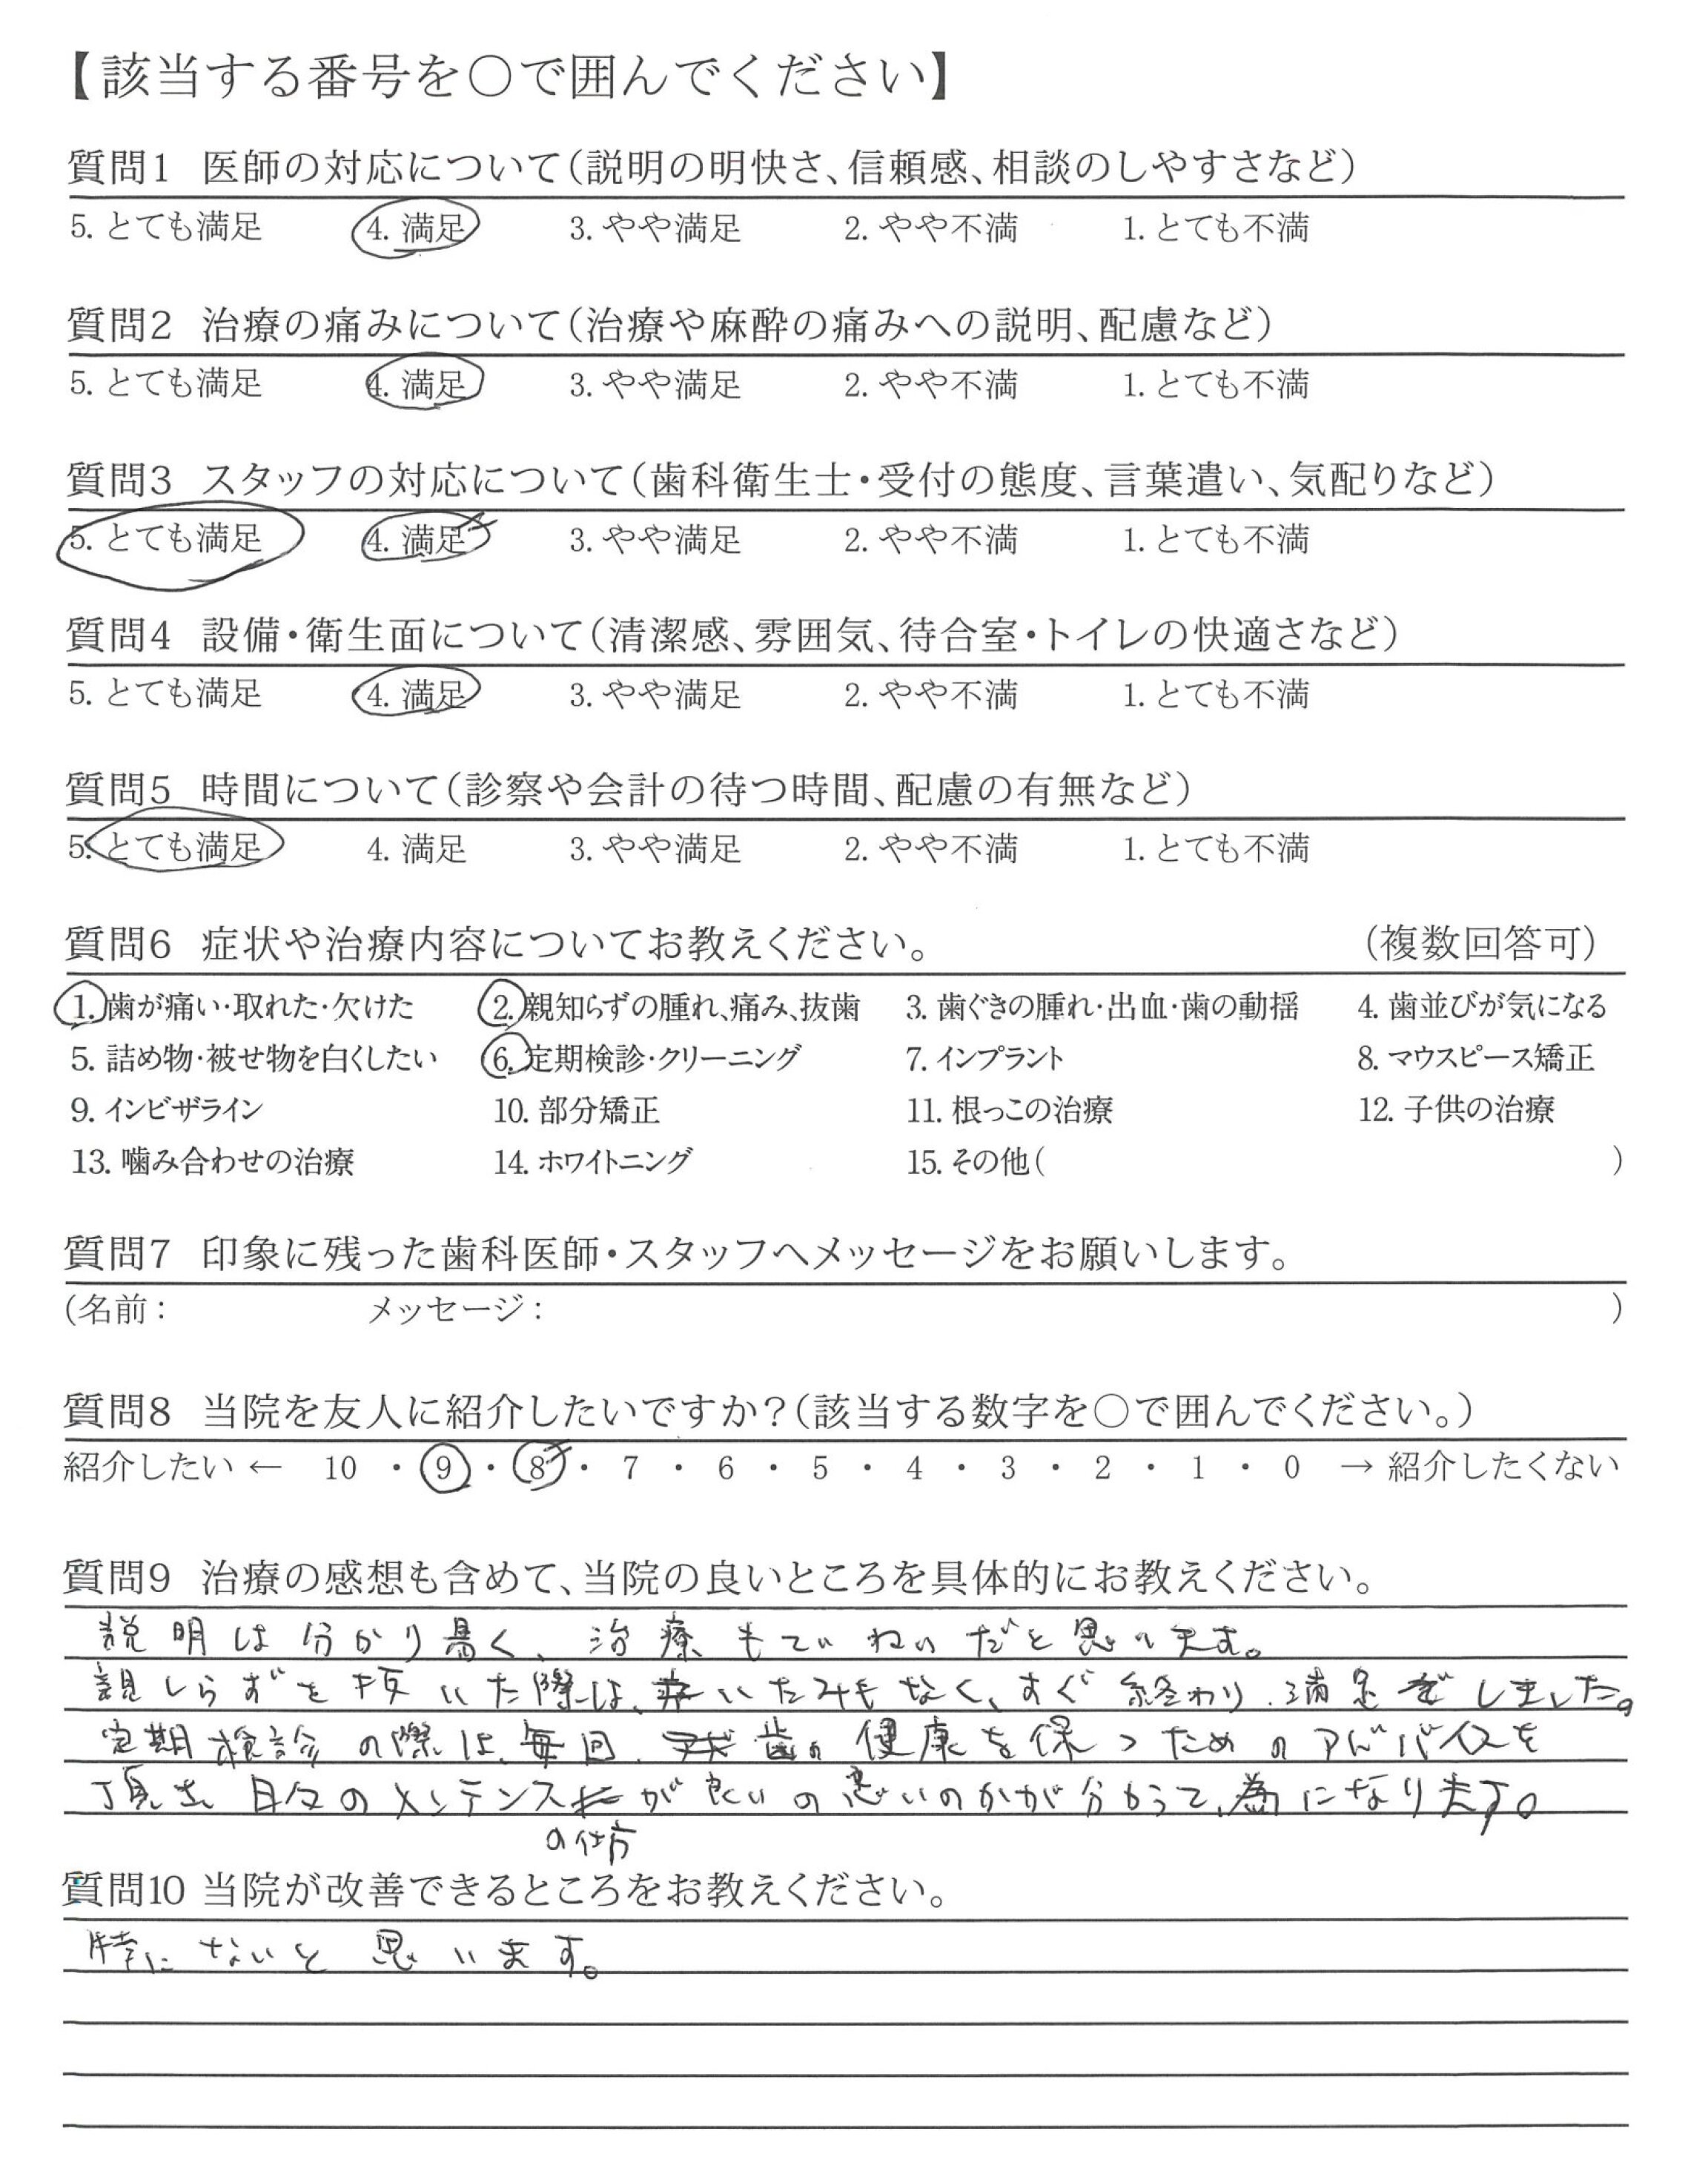 【該当する番号を○で囲んでください】
質問1 医師の対応について(説明の明快さ、信頼感、相談のしやすさなど)
5. とても満足 4. 満足 3. やや満足 2. やや不満 1. とても不満
質問2 治療の痛みについて(治療や麻酔の痛みへの説明、配慮など)
5. とても満足 4. 満足 3. やや満足 2. やや不満 1. とても不満
質問3 スタッフの対応について(歯科衛生士・受付の態度、言葉遣い、気配りなど)
5. とても満足 4. 満足 3. やや満足 2. やや不満 1. とても不満
質問4 設備・衛生面について(清潔感、雰囲気、待合室・トイレの快適さなど)
5. とても満足 4. 満足 3. やや満足 2. やや不満 1. とても不満
質問5 時間について(診察や会計の待つ時間、配慮の有無など)
5. とても満足 4. 満足 3. やや満足 2. やや不満 1. とても不満
質問6 症状や治療内容についてお教えください。 (複数回答可)
1. 歯が痛い・取れた・欠けた 2. 親知らずの腫れ、痛み、抜歯 3. 歯ぐきの腫れ・出血・歯の動揺 4. 歯並びが気になる
5. 詰め物・被せ物を白くしたい 6. 定期検診・クリーニング 7. インプラント 8. マウスピース矯正
9. インビザライン 10. 部分矯正 11. 根っこの治療 12. 子供の治療
13. 噛み合わせの治療 14. ホワイトニング 15. その他( )
質問7 印象に残った歯科医師・スタッフへメッセージをお願いします。
(名前: メッセージ: )
質問8 当院を友人に紹介したいですか?(該当する数字を○で囲んでください。)
紹介したい ← 10 ・ 9 ・ 8 ・ 7 ・ 6 ・ 5 ・ 4 ・ 3 ・ 2 ・ 1 ・ 0 → 紹介したくない
質問9 治療の感想も含めて、当院の良いところを具体的にお教えください。
説明は分かり易く、治療もていねいだと思います。
親しらずを抜いた際は、いたみもなく、すぐ終わり、満足しました。
定期検診の際は、毎回、歯の健康を保つためのアドバイスを
頂き、日々のメンテンスが良いの悪いのかが分かって、為になります。
の仕方
質問10 当院が改善できるところをお教えください。
特にないと思います。